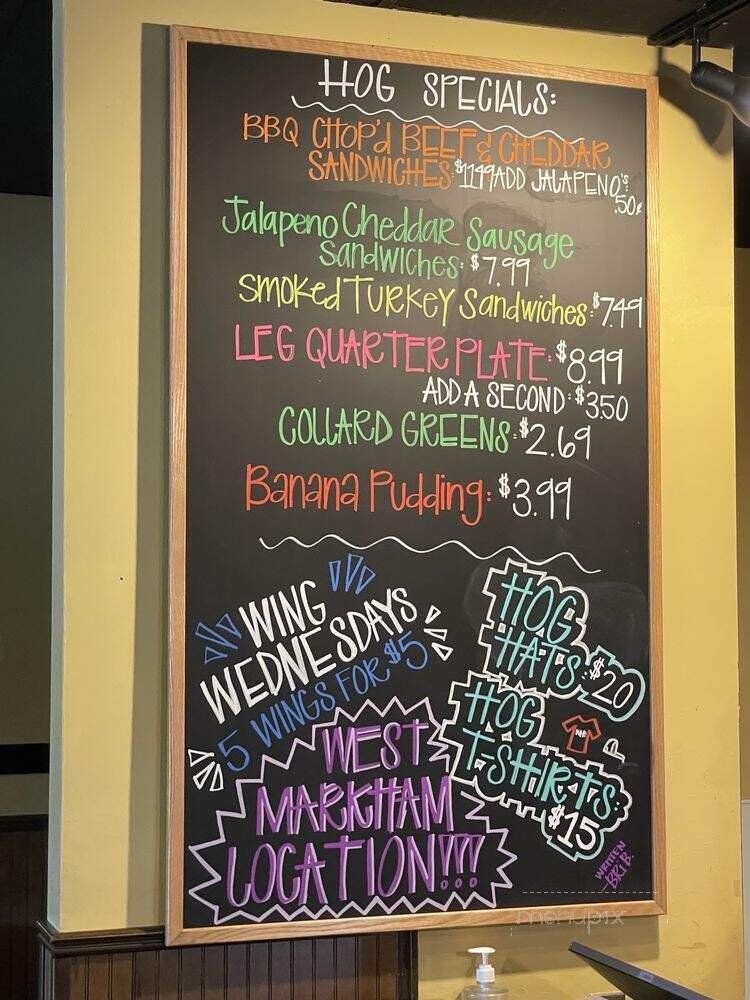 HOG SPECIALS:
BBQ CHOP'd BEEF & CHEDDAR
SANDWICHES: $11.49 ADD JALAPENO'S:
.50¢
Jalapeno Cheddar Sausage
Sandwiches: $7.99
Smoked Turkey Sandwiches: $7.49
LEG QUARTER PLATE: $8.99
ADD A SECOND: $3.50
COLLARD GREENS: $2.69
Banana Pudding: $3.99
WING
WEDNESDAYS
5 WINGS FOR $5
HOG
HATS: $20
HOG
T-SHIRTS:
$15
WEST
MARKHAM
LOCATION!!!
WRITTEN
BRi B.
menupix